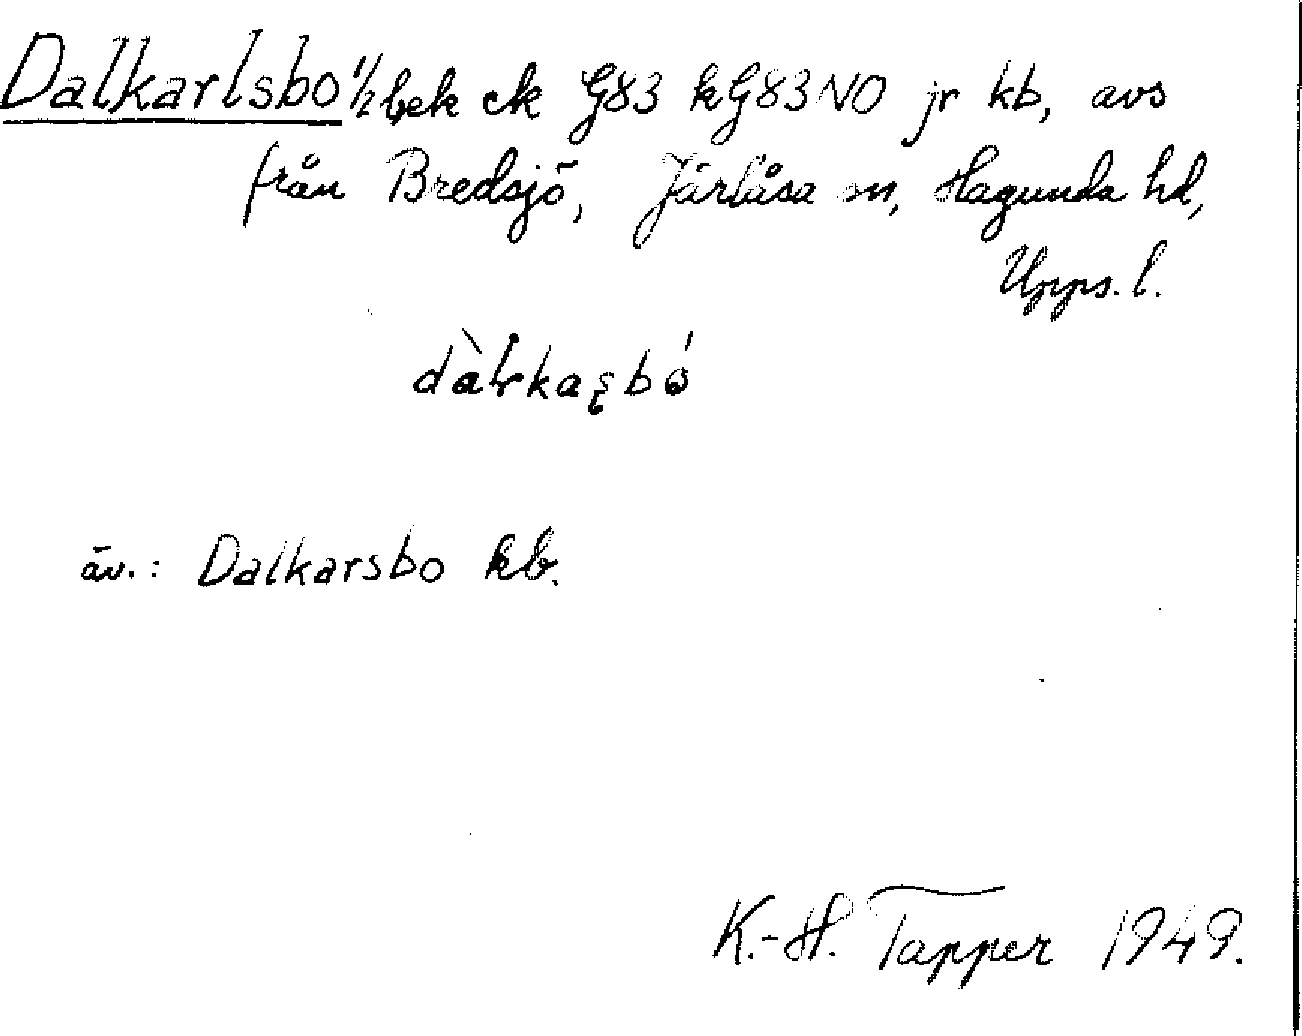 Dalkarlsbo ½ bek ck G83 kG83NO jr kb, avs
från Bredsjö, Järlåsa sn, Hagunda hd,
Upps. l.
äv.: Dalkarsbo kb.
K.-H. Tapper 1949.